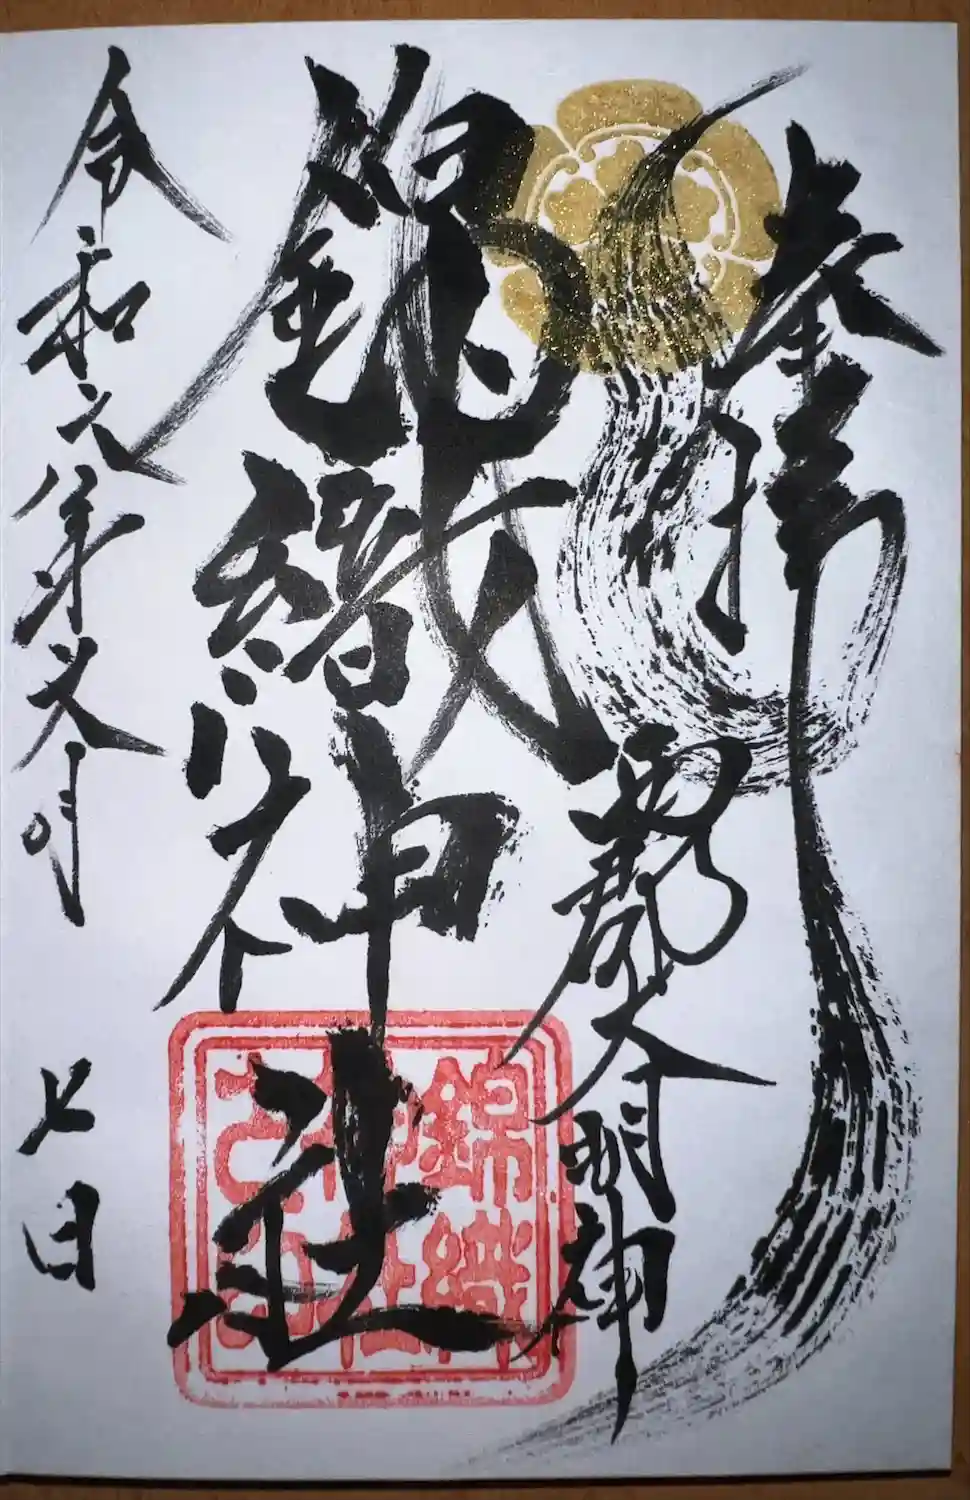 奉拝
郡大明神
錦織神社
錦織
神社
之印
令和六年文月
七日